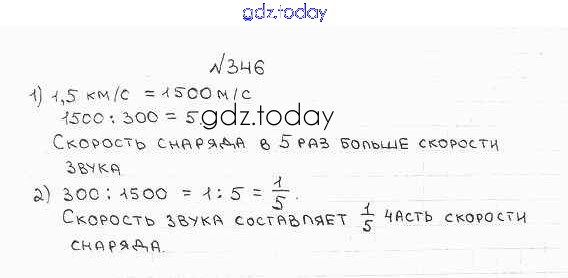 gdz.today
№346
1) 1,5 км/с = 1500 м/с
1500 : 300 = 5
gdz.today
Скорость снаряда в 5 раз больше скорости
звука
2) 300 : 1500 = 1 : 5 = 1/5.
Скорость звука составляет 1/5 часть скорости
снаряда.